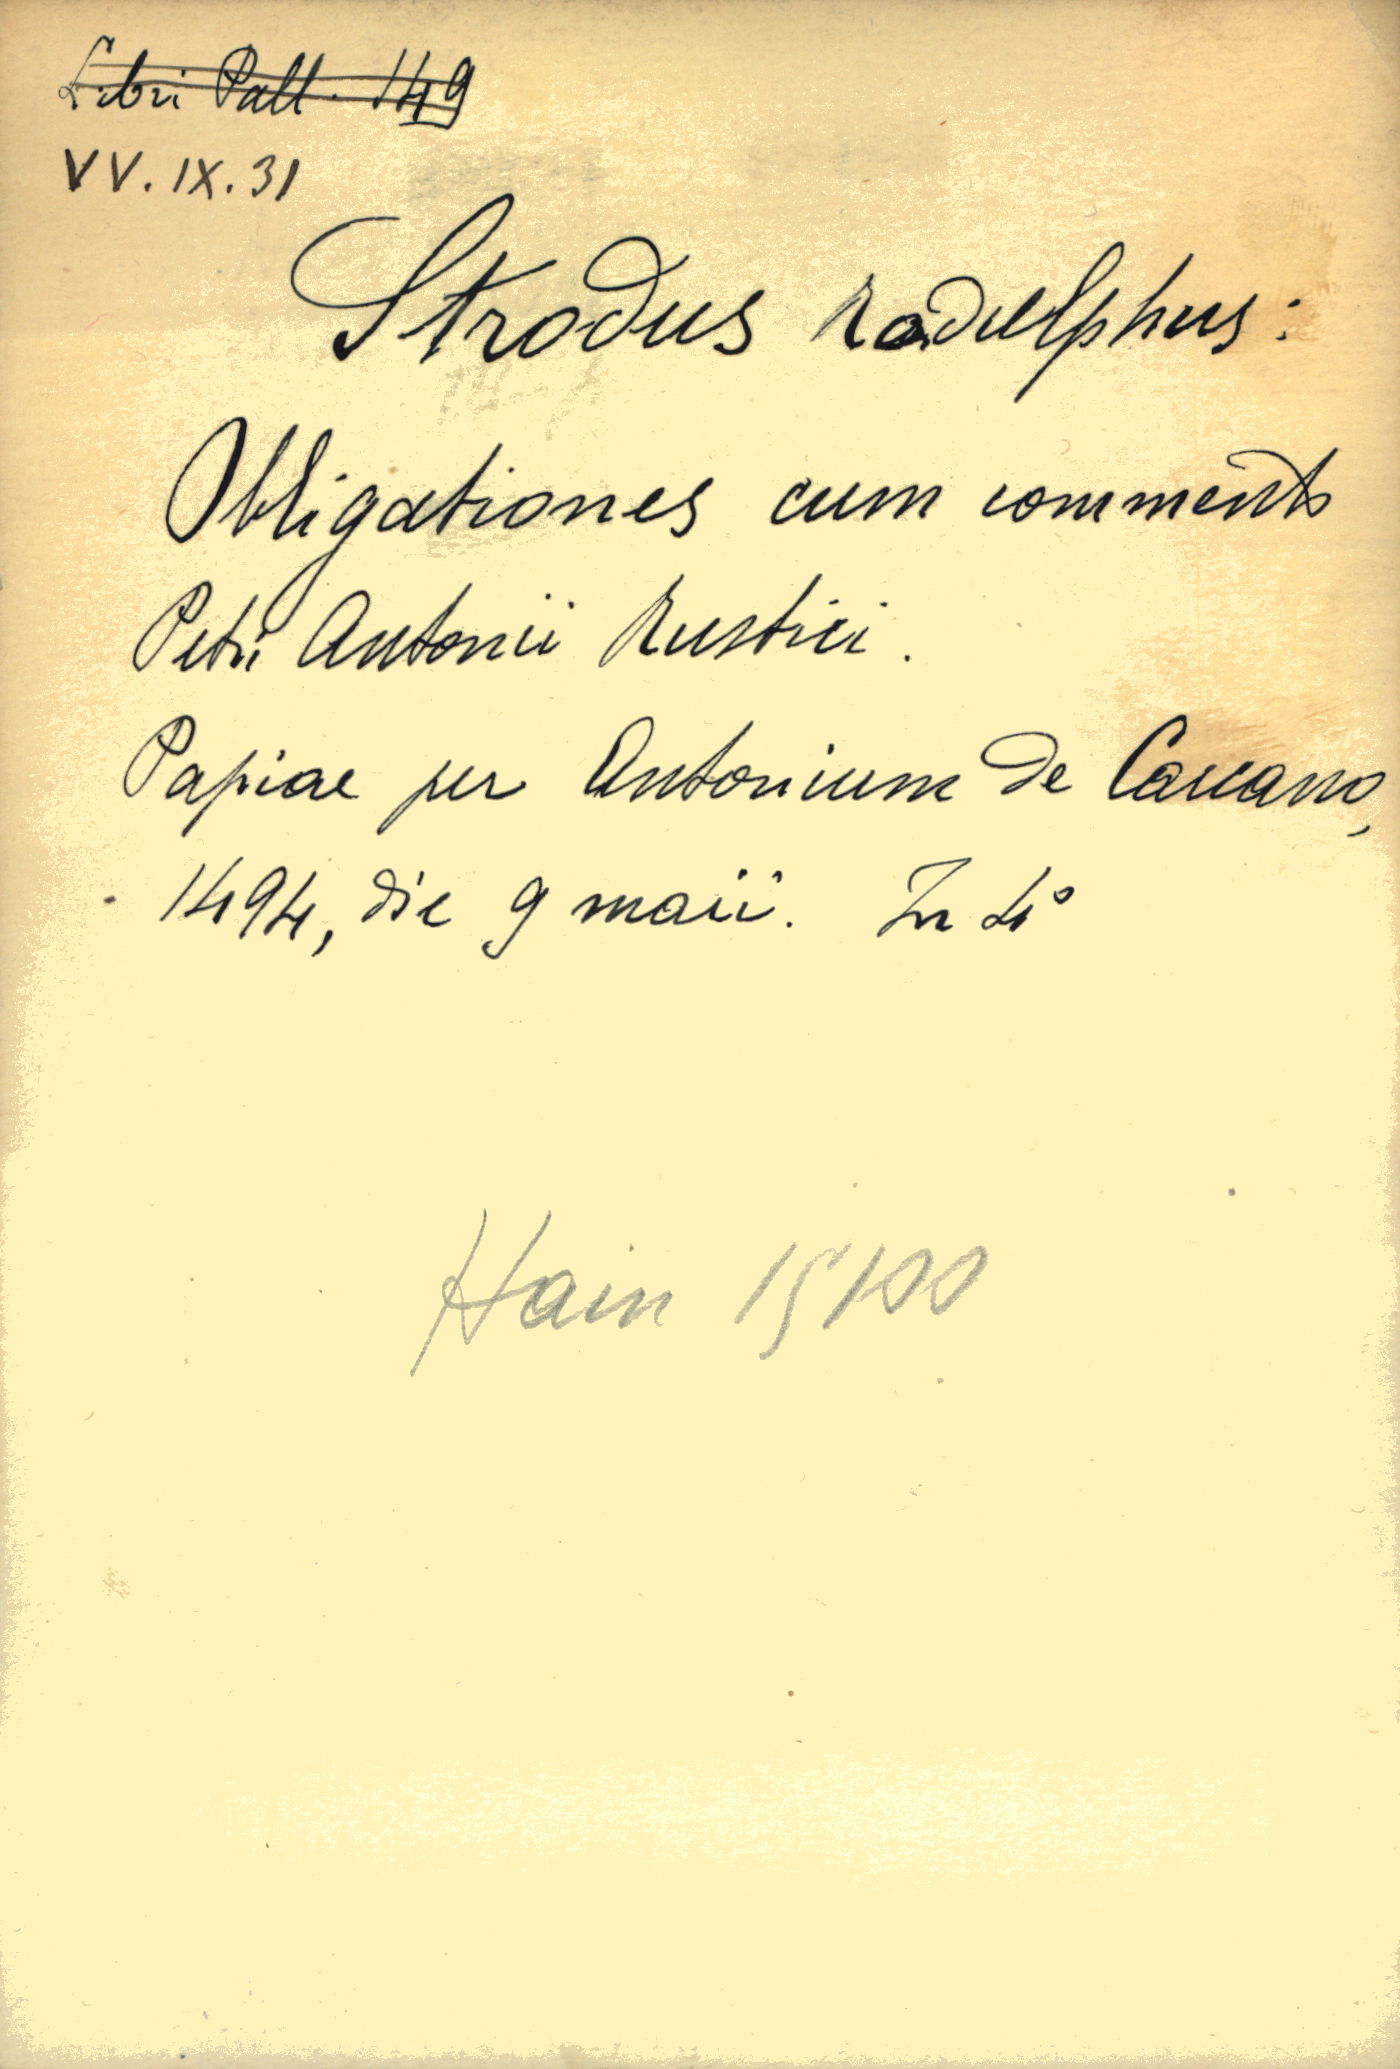 Libri Pall. 149
VV. IX. 31
Strodus Radulphus:
Obligationes cum commento
Petri Antonii Rustici.
Papiae per Antonium de Carcano,
1494, die 9 maii. In 4°
Hain 15100